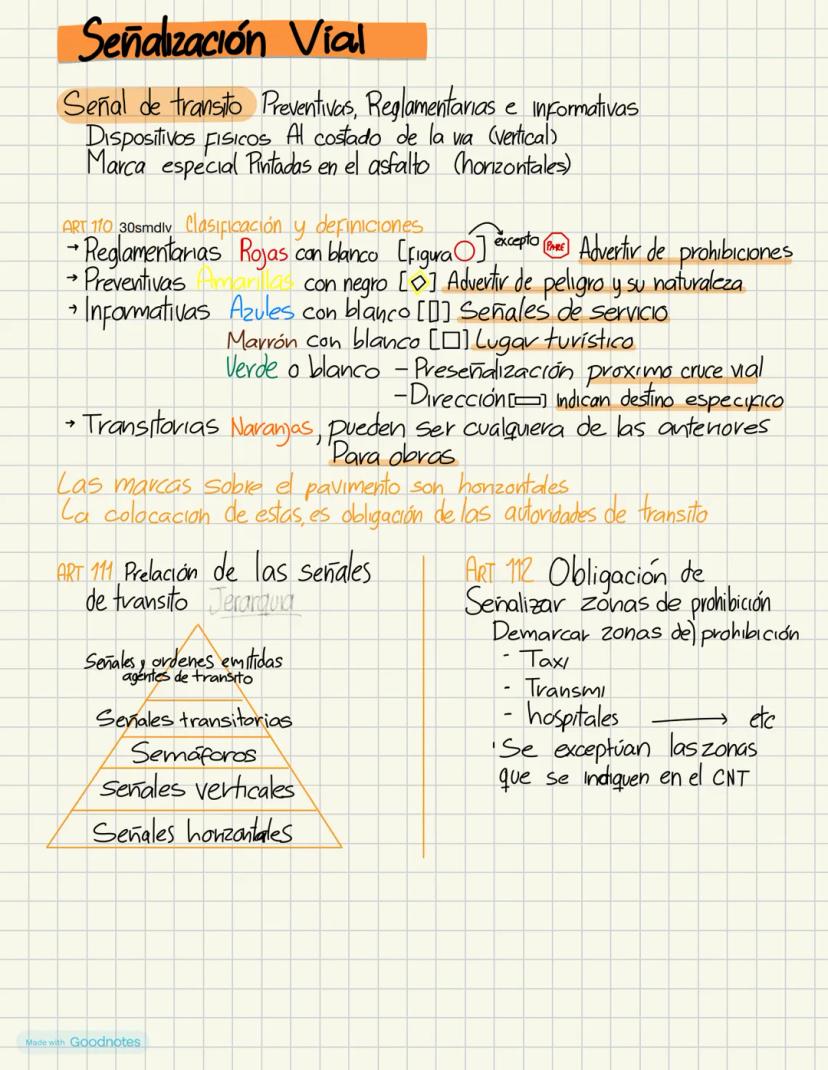 Señalización Vial
Señal de transito Preventivas, Reglamentarias e informativas
Dispositivos Fisicos Al costado de la via (vertical)
Marca especial Pintadas en el asfalto (horizontales)
ART 110 30smdlv Clasificación y definiciones
→ Reglamentarias Rojas con blanco [Figura ] excepto PARE Advertir de prohibiciones
→ Preventivas Amarillas con negro [ ] Advertir de peligro y su naturaleza
→ Informativas Azules con blanco [ ] Señales de servicio
Marrón con blanco [ ] Lugar turístico
Verde o blanco - Preseñalización proximo cruce vial
- Dirección [ ] Indican destino especifico
→ Transitorias Naranjas, pueden ser cualquera de las anteriores
Para obras
Las marcas sobre el pavimento son horizontales
La colocacion de estas, es obligación de las autoridades de transito
ART 111 Prelación de las señales
de transito Jerarquia
Señales y ordenes emitidas
agentes de transito
Señales transitorias
Semáforos
Señales verticales
Señales horizontales
ART 112 Obligación de
Señalizar zonas de prohibición
Demarcar zonas de) prohibición
- Taxi
- Transmi
- hospitales → etc
'Se exceptúan las zonas
que se indiquen en el CNT
Made with Goodnotes